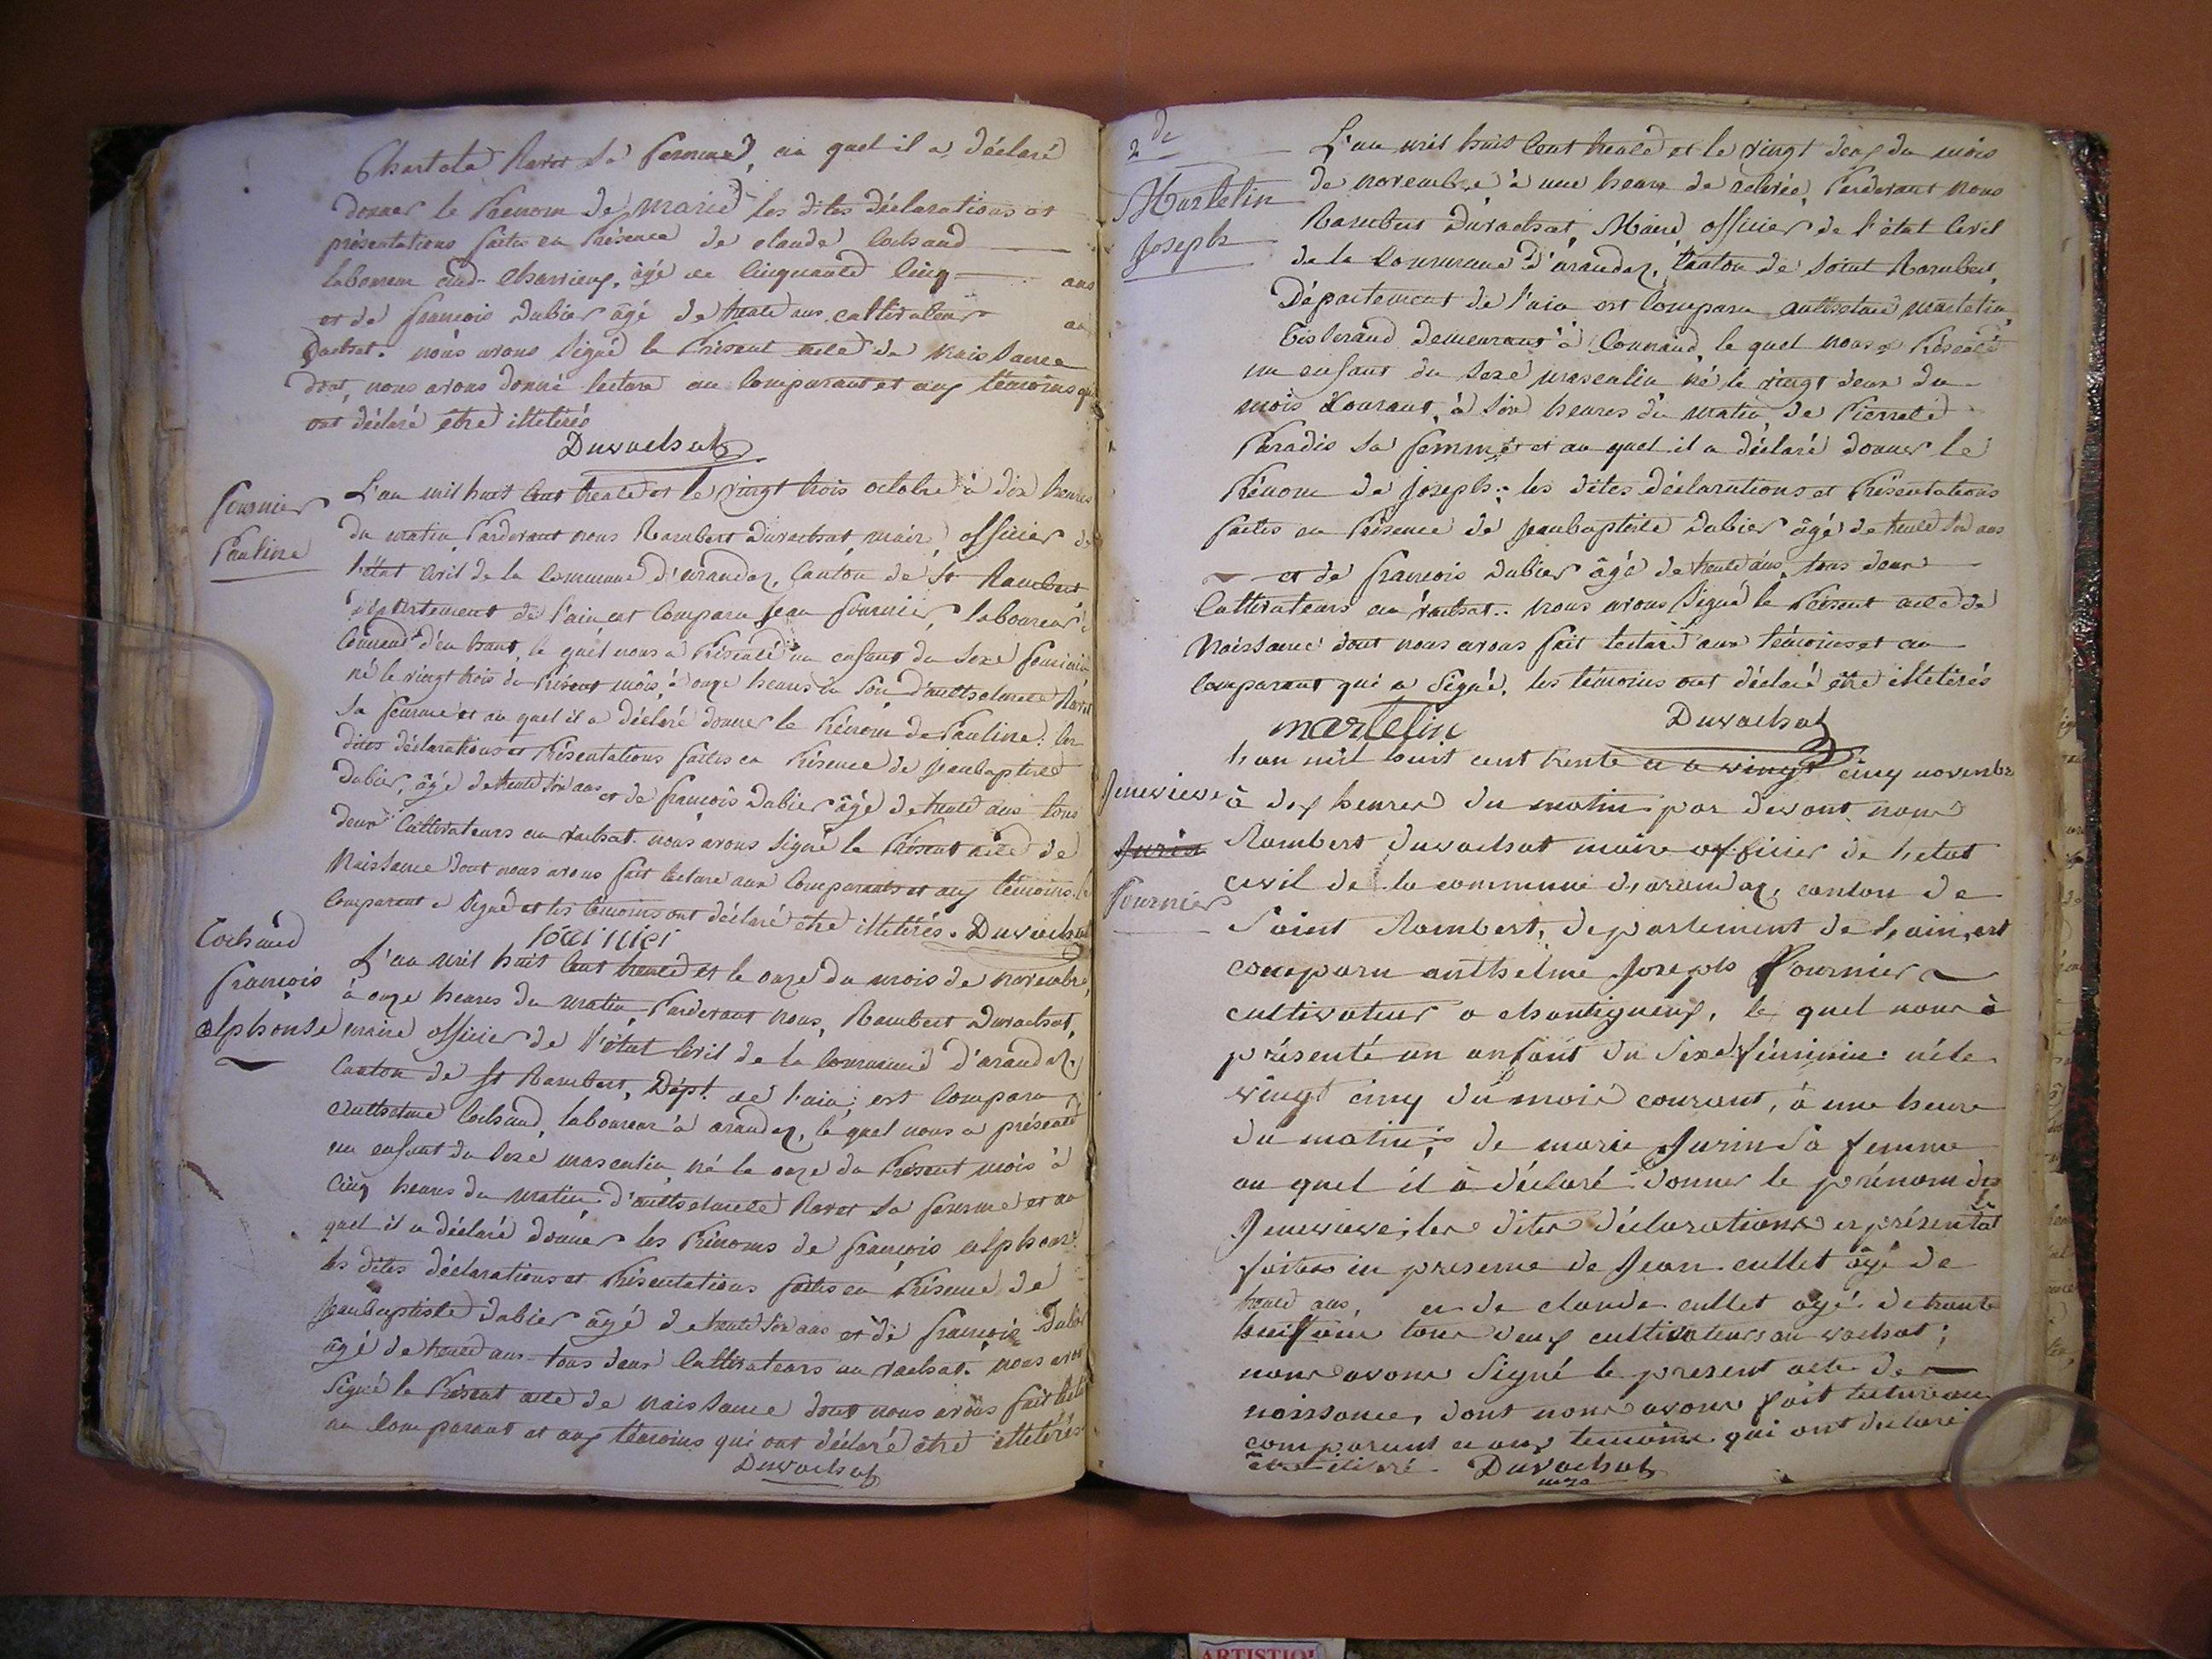 Charlote Ravet sa femme, au quel il a déclaré
donner le Prénom de Marie les dites déclarations et
présentations faites en Présence de claude Cochaud
laboureur aud. Charvieux, âgé de Cinquante Cinq ans
et de françois Dubier âgé de trente ans cultivateur au
Vachat. nous avons signé le Présent acte de naissance
dont nous avons donné lecture au Comparant et aux témoins qui
ont déclaré être illetirés
Duvachat
fournier
Pauline
L'an mil huit Cent trente et le vingt trois octobre à dix heures
du matin Pardevant nous Rambert Duvachat, maire, officier de
l'état Civil de la Commune d'arandaz, Canton de St Rambert
Département de l'ain est Comparu Jean fournier, laboureur à
Connand d'en haut, le quel nous a Présenté un enfant du sexe féminin
né le vingt trois du Présent mois, à onze heures du soir d'anthelmete Ravet
sa femme et au quel il a déclaré donner le Prénom de Pauline: les
dites déclarations et Présentations faites en Présence de jeanbaptiste
Dubier, âgé de trente six ans et de françois Dubier âgé de trente ans tous
deux Cultivateurs au vachat. nous avons signé le Présent acte de
Naissance dont nous avons fait lecture aux Comparants et aux témoins, le
Comparant a signé et les témoins ont déclaré être illetirés. Duvachat
fournier
Cochaud
françois
alphonse
L'an mil huit Cent trente et le onze du mois de novembre,
à onze heures du matin, Pardevant nous, Rambert Duvachat,
maire officier de l'état Civil de la Commune d'arandaz
Canton de St Rambert, Dépt. de l'ain; est Comparu
anthelme Cochaud, laboureur à arandaz, le quel nous a présenté
un enfant du sexe masculin né le onze du Présent mois à
Cinq heures du matin d'anthelmete Ravet sa femme et au
quel il a déclaré donner les Prénoms de françois alphonse
les dites déclarations et Présentations faites en Présence de
jeanbaptiste Dubier âgé de trente six ans et de françois Dubier
âgé de trente ans tous deux Cultivateurs au vachat. nous avons
signé le Présent acte de naissance dont nous avons fait lecture
au Comparant et aux témoins qui ont déclaré être illetirés
Duvachat
2de
Martelin
Joseph
L'an mil huit Cent trente et le vingt deux du mois
de novembre à une heure de relevée, Pardevant nous
Rambert Duvachat, Maire, officier de l'état Civil
de la Commune d'arandaz, Canton de saint Rambert,
Département de l'ain est Comparu anthelme martelin
tisserand demeurant à Connand, le quel nous a Présenté
un enfant du sexe masculin né le vingt deux du
mois Courant, à six heures du matin de Pierrete
Paradis sa femme et au quel il a déclaré donner le
Prénom de joseph: les dites déclarations et Présentations
faites en Présence de jeanbaptiste Dubier âgé de trente six ans
et de françois Dubier âgé de trente ans, tous deux
Cultivateurs au vachat. nous avons signé le Présent acte de
Naissance dont nous avons fait lecture aux témoins et au
Comparant qui a signé, les témoins ont déclaré être illetirés
martelin Duvachat
Jenevieve
Jurin
Fournier
L'an mil huit cent trente et le vingt cinq novembre
à dix heures du matin par devant nous
Rambert Duvachat maire officier de l'etat
civil de la commune d'arandaz, canton de
Saint Rambert, departement de l'ain, est
comparu anthelme Joseph Fournier
cultivateur a chantigneux, le quel nous à
présenté un anfant du sexe féminin né le
vingt cinq du mois courant, à une heure
du matin; de marie Jurin sa femme
au quel il à déclaré donner le prénom de
Jenevieve; les dites déclarations et présentat
faites en presence de Jean cullet âgé de
trente ans, et de claude cullet agé de trante
huit ans tous deux cultivateurs au vachat;
nous avons signé le present acte de
naissance, dont nous avons fait lecture au
comparant et aux temoins qui ont declaré
Duvachat
ARTISTIQU